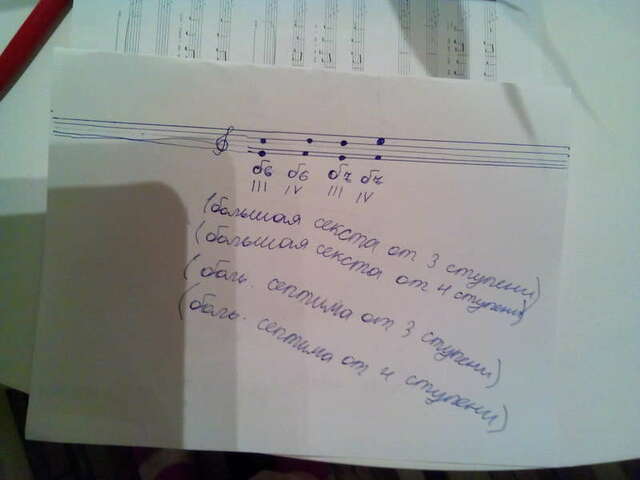 б6 б6 б7 б7
III IV III IV
(большая секста от 3 ступени)
(большая секста от 4 ступени)
(боль. септима от 3 ступени)
(боль. септима от 4 ступени)